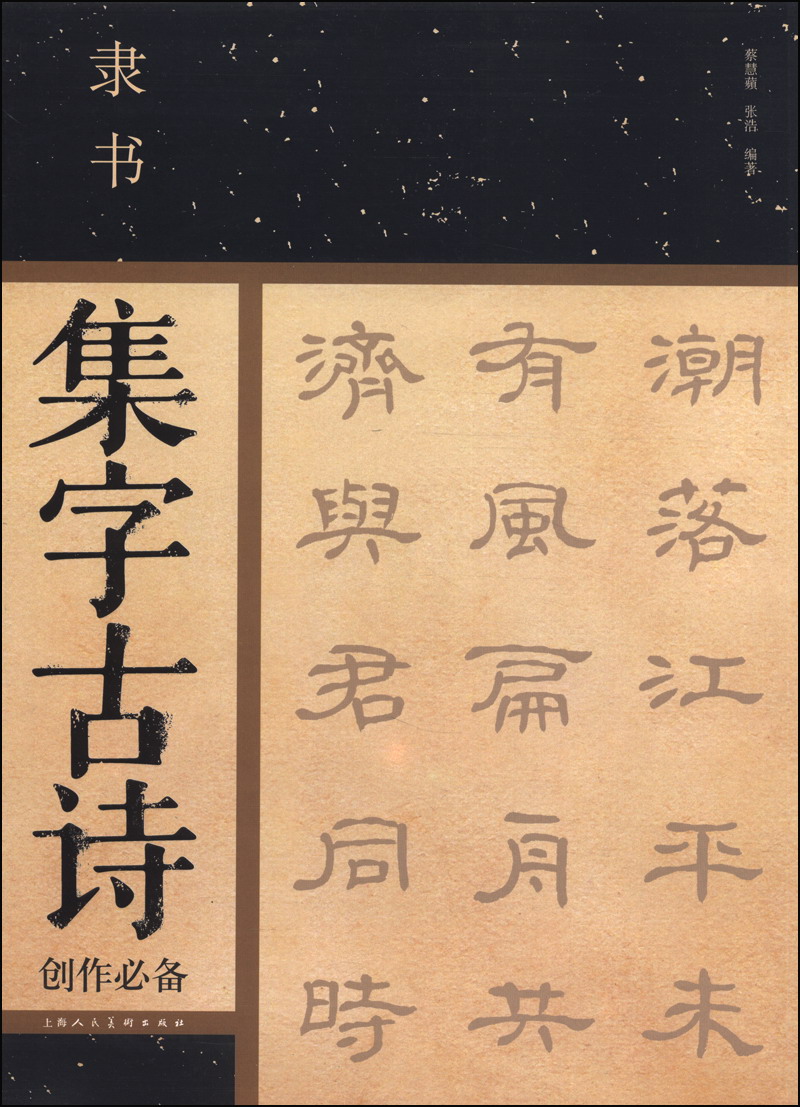 隶书
蔡慧蘋 张浩 编著
集字古诗
创作必备
上海人民美術出版社
潮落江平未
有風扁舟共
濟與君同時